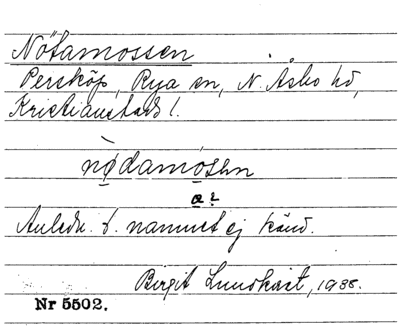 Nötamossen
Persköp, Rya sn, N. Åsbo hd,
Kristianstads l.
nø̀damósen
a?
Anledn. t. namnet ej känd.
Birgit Lundkvist, 1938.
Nr 5502.